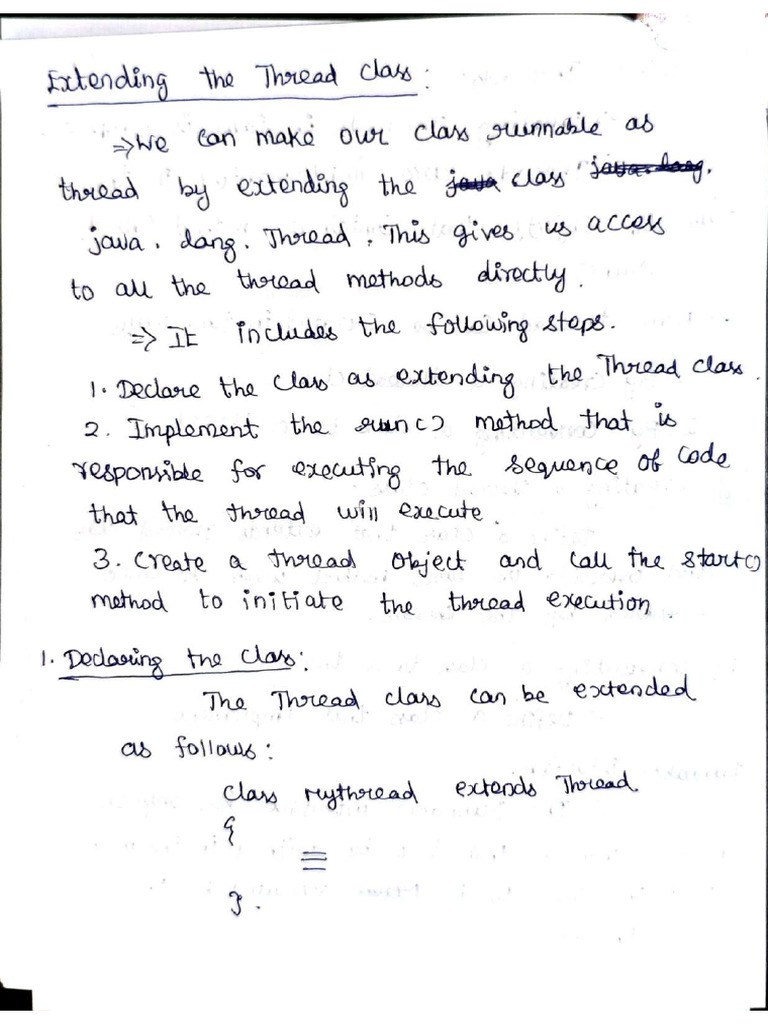 Extending the Thread Class:
⇒ We can make our class runnable as
thread by extending the class
java.lang.Thread. This gives us access
to all the thread methods directly.
⇒ It includes the following steps.
1. Declare the class as extending the Thread class.
2. Implement the run() method that is
responsible for executing the sequence of code
that the thread will execute.
3. Create a thread object and call the start()
method to initiate the thread execution
1. Declaring the Class:
The Thread class can be extended
as follows:
class Mythread extends Thread.
{
}.